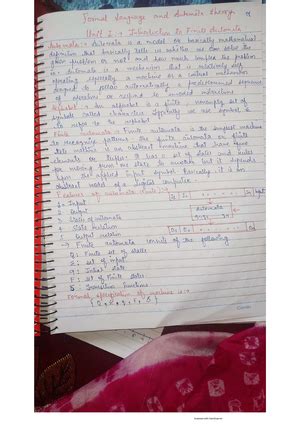 Formal language and Automata theory
Unit 1 :- Introduction to Finite Automata
Automata :- Automata is a model or basically mathematical
definition that basically tells us whether we can solve the
given problem or not and how much complex the problem
is. Automata is a mechanism that is relatively self
operating, especially a machine or a control mechanism
designed to follow automatically a predetermined sequence
of operations or respond to encoded instructions
Alphabet :- An alphabet is a finite, nonempty set of
symbols called characters. Generally we use symbol Σ
to refer to the alphabet
Finite Automata :- Finite automata is the simplest machine
to recognize patterns. The finite automata or finite
state machine is an abstract machine that have five
elements or tuples. It has a set of states and rules
for moving from one state to another but it depends
upon the applied input symbol. Basically it is an
abstract model of a digital computer.
Features of automata
1 Input
2 Output
3 States of automata
4 State Relation
5 Output relation
→ Finite automata consists of the following
Q : Finite set of states
Σ : set of input
q : Initial state
F : set of Finite States
δ : Transition functions
Formal specification of machine is :-
{ Q, Σ, q, F, δ }